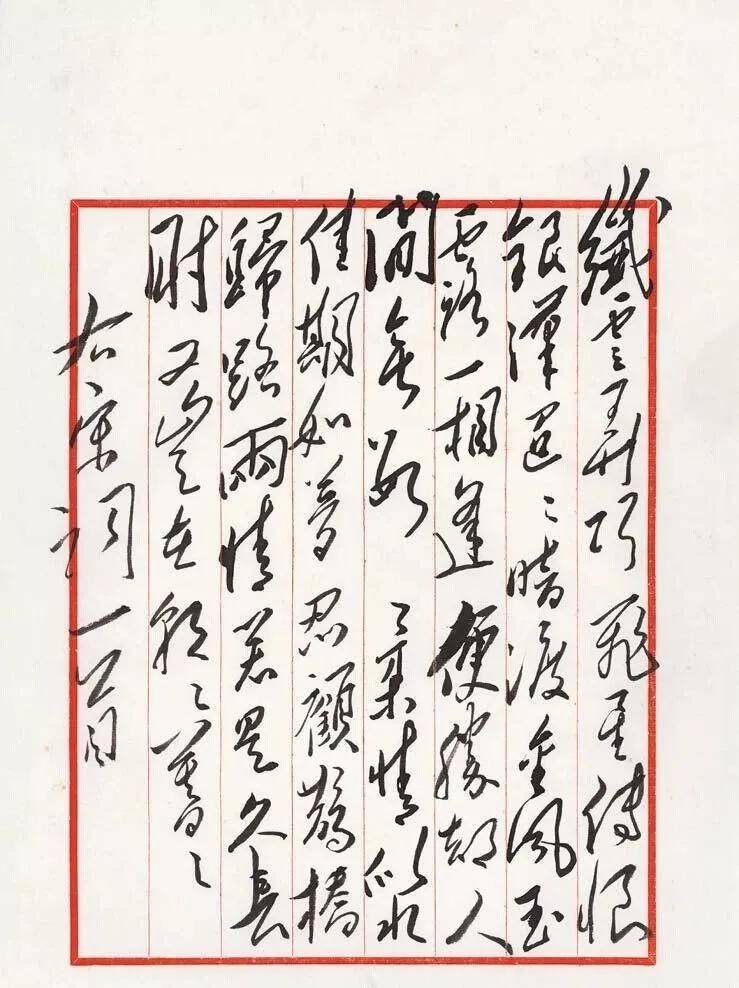 纖雲弄巧飛星傳恨
銀漢迢〻暗渡金風玉
露一相逢便勝却人
間無數　柔情似水
佳期如夢忍顧鵲橋
歸路兩情若是久長
時又豈在朝〻暮〻
右宋詞一首